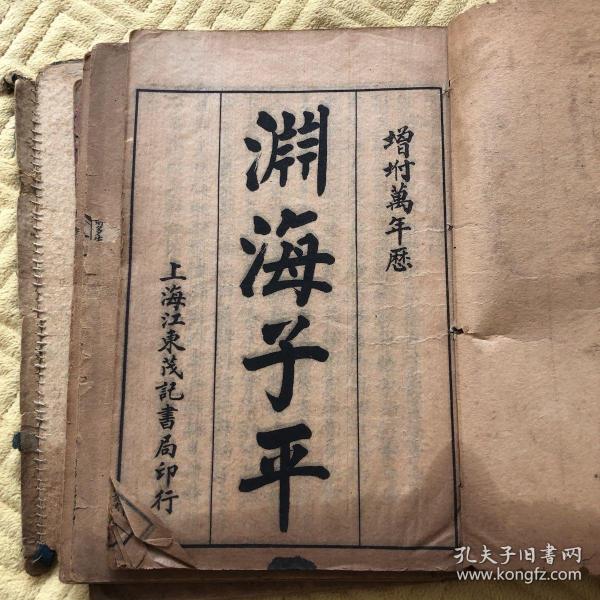 增坿萬年厯
淵海子平
上海江東茂記書局印行
孔夫子旧书网
www.kongfz.com